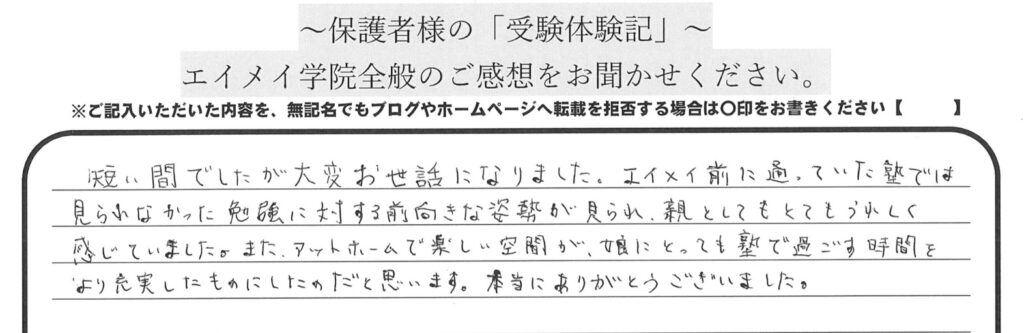 ～保護者様の「受験体験記」～
エイメイ学院全般のご感想をお聞かせください。
※ご記入いただいた内容を、無記名でもブログやホームページへ転載を拒否する場合は〇印をお書きください【　　　】
短い間でしたが大変お世話になりました。エイメイ前に通っていた塾では
見られなかった勉強に対する前向きな姿勢が見られ、親としてもとてもうれしく
感じていました。また、アットホームで楽しい空間が、娘にとっても塾で過ごす時間を
より充実したものにしたのだと思います。本当にありがとうございました。